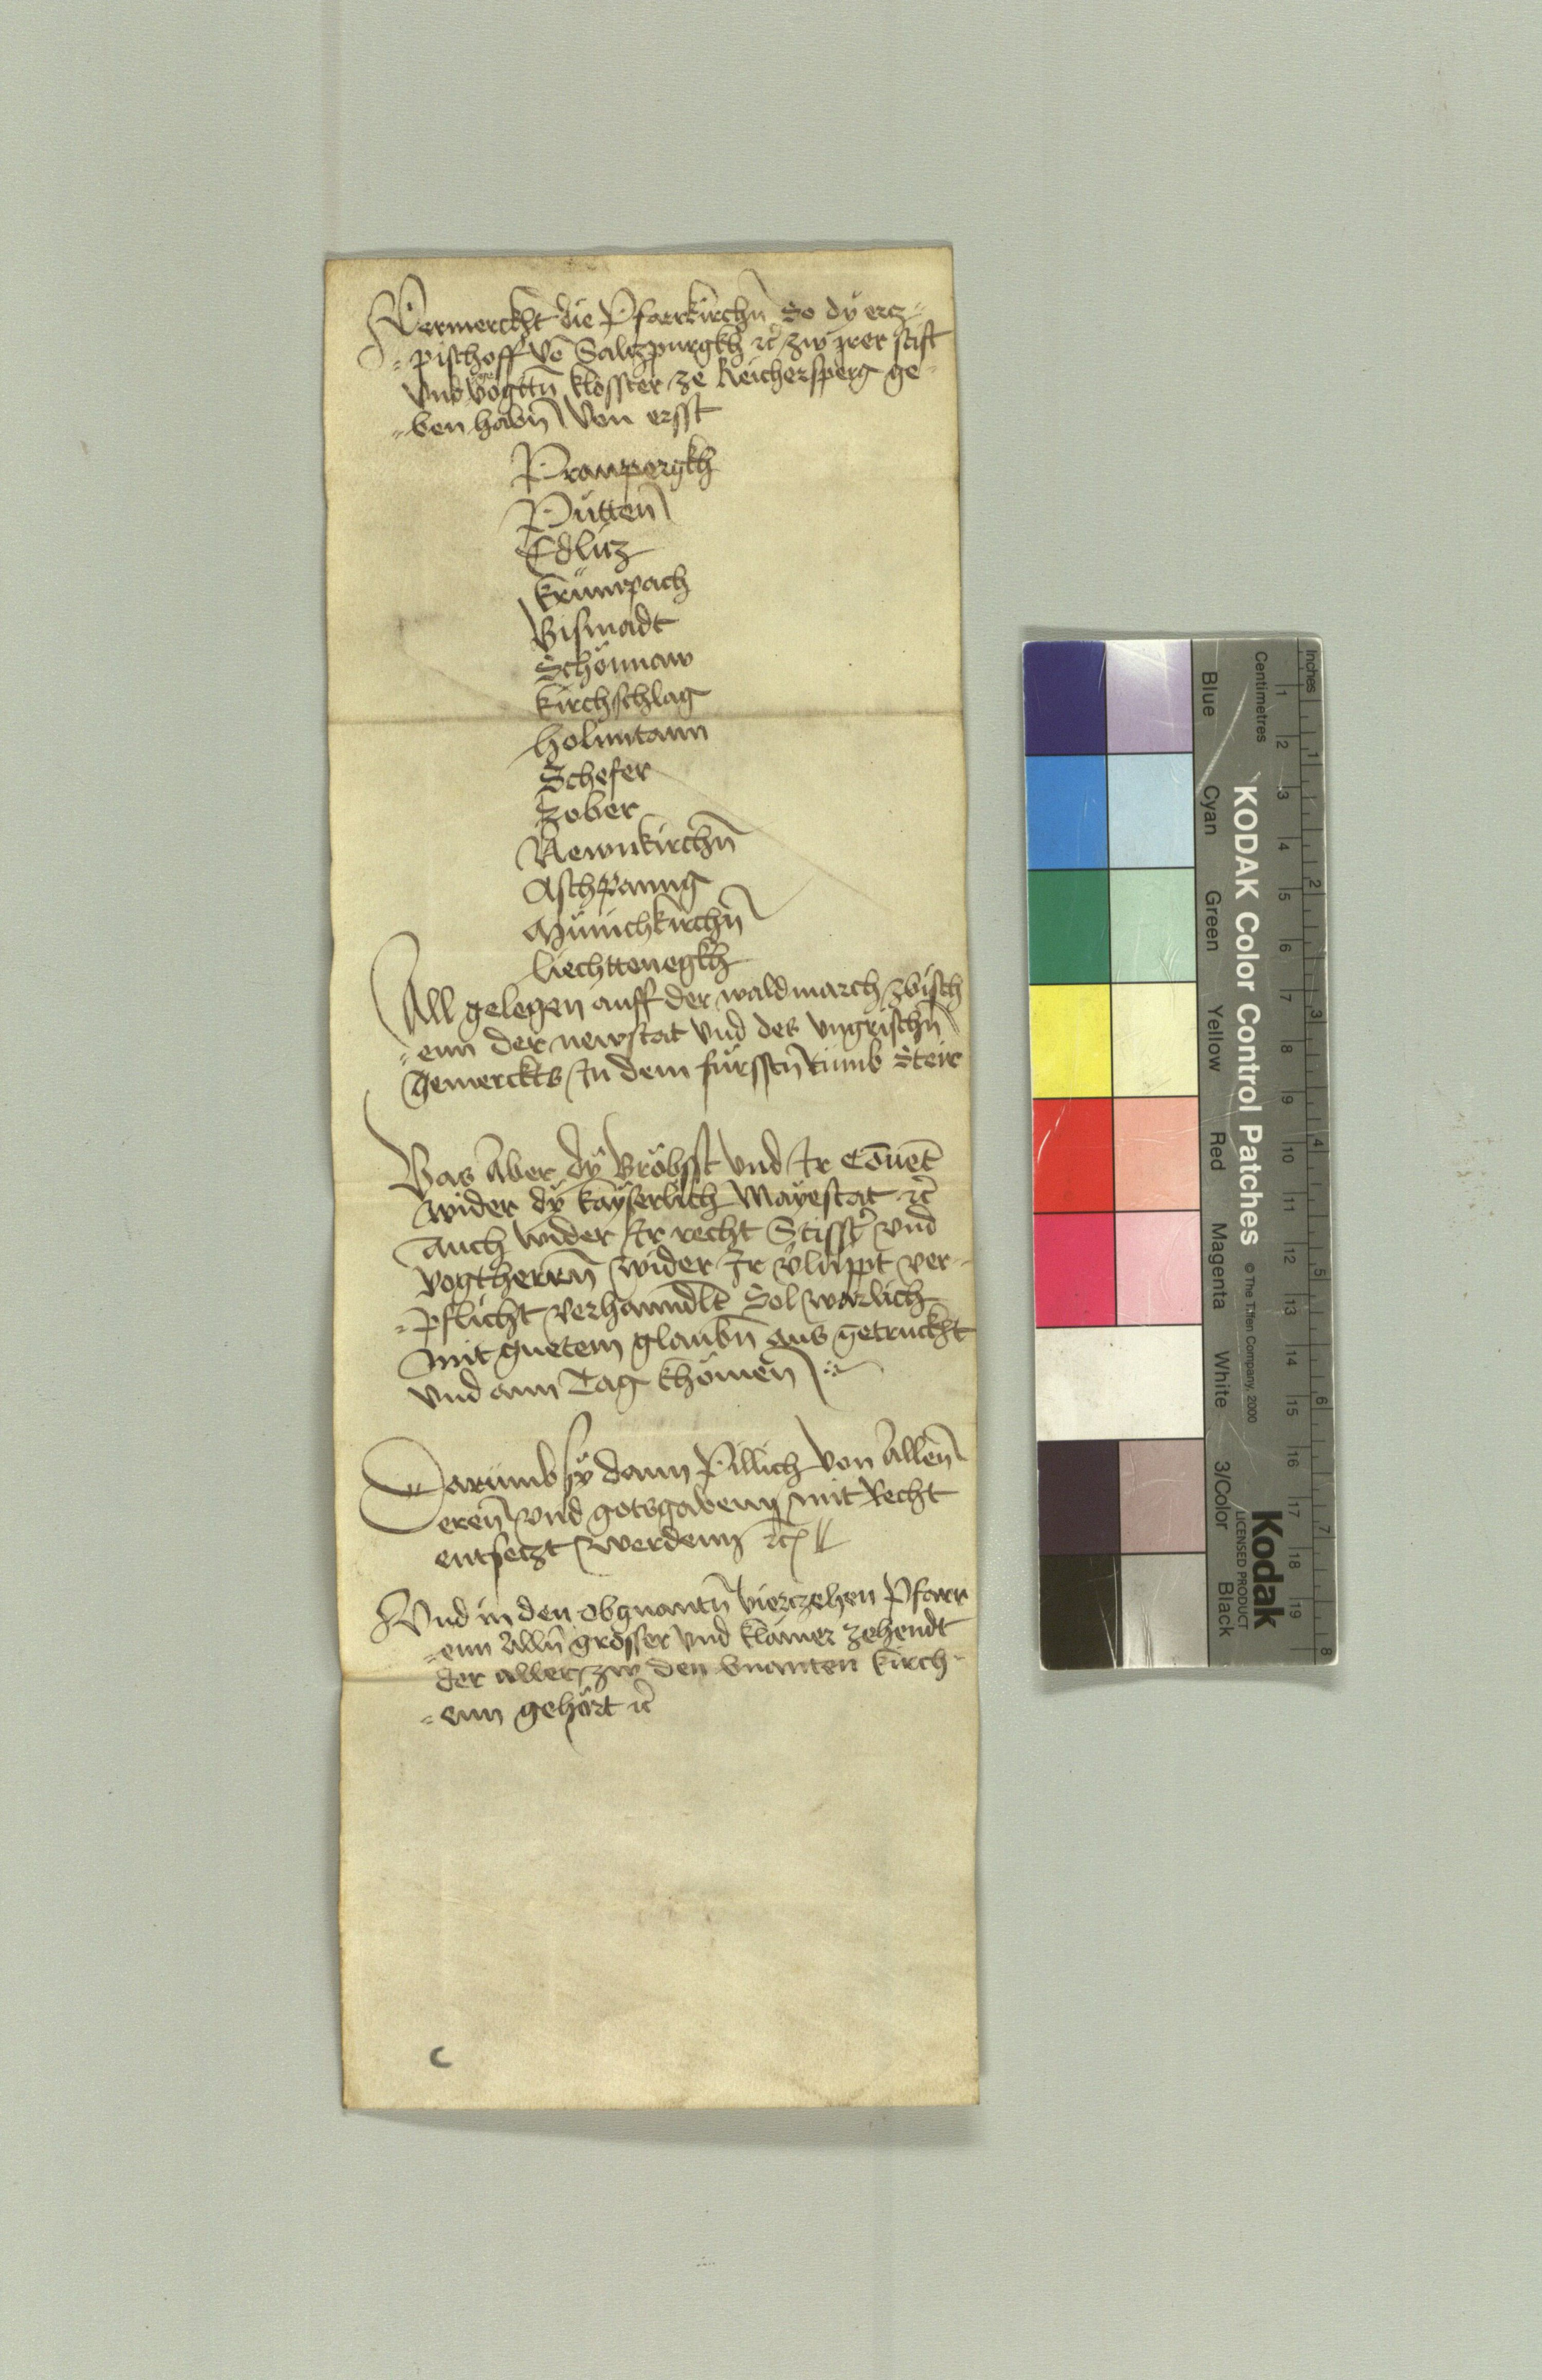 Vermerckht die Pfarrkirchn̄ So dÿ ercz=
=pischoff vō Saltzpurgkh ꝛc̄ zw irer stift
vnd vogttn̄ klosster ze Reichersperg ge=
=ben habn̄ Von ersst
Prampergkh
Pütten
Edlicz
Krumpach
Bismadt
Schönnaw
Kirchschlag
Holnntann
Schefer
Zober
Newnkirchn̄
Aschpanng
Münichkirchn̄
Liechttenegkh
All gelegen auff der waldmarch zbisch
=enn der newstat vnd des vngrischn̄
Gemerckts In dem fürsstn̄tumb Steir
Was aber dÿ Bröbsst vnd Ir Cōuēt
wider dÿ kayserlich Mayestat ꝛc̄
auch wider Ir recht Stiffter vnd
vogtherrn̄ wider Ir glüppt ver=
=pflicht verhanndlt Sol warlich
mit guetem glaubn̄ aus getruckht
vnd ann Tag khömen
Darumb sÿ dann Pillich von allen
eren vnd gotsgabenn mit Recht
entseczt werdenn ꝛc
Vnd in den obgnantn̄ vierczehen Pfarr
=enn alln̄ grosser vnd klainer zehendt
der aller zw den bnanten kirch=
=enn gehört ꝛc̄
C
Inches
Centimetres
1 2 3 4 5 6 7 8
1 2 3 4 5 6 7 8 9 10 11 12 13 14 15 16 17 18 19
KODAK Color Control Patches
© The Tiffen Company, 2000
Kodak
LICENSED PRODUCT
Blue Cyan Green Yellow Red Magenta White 3/Color Black